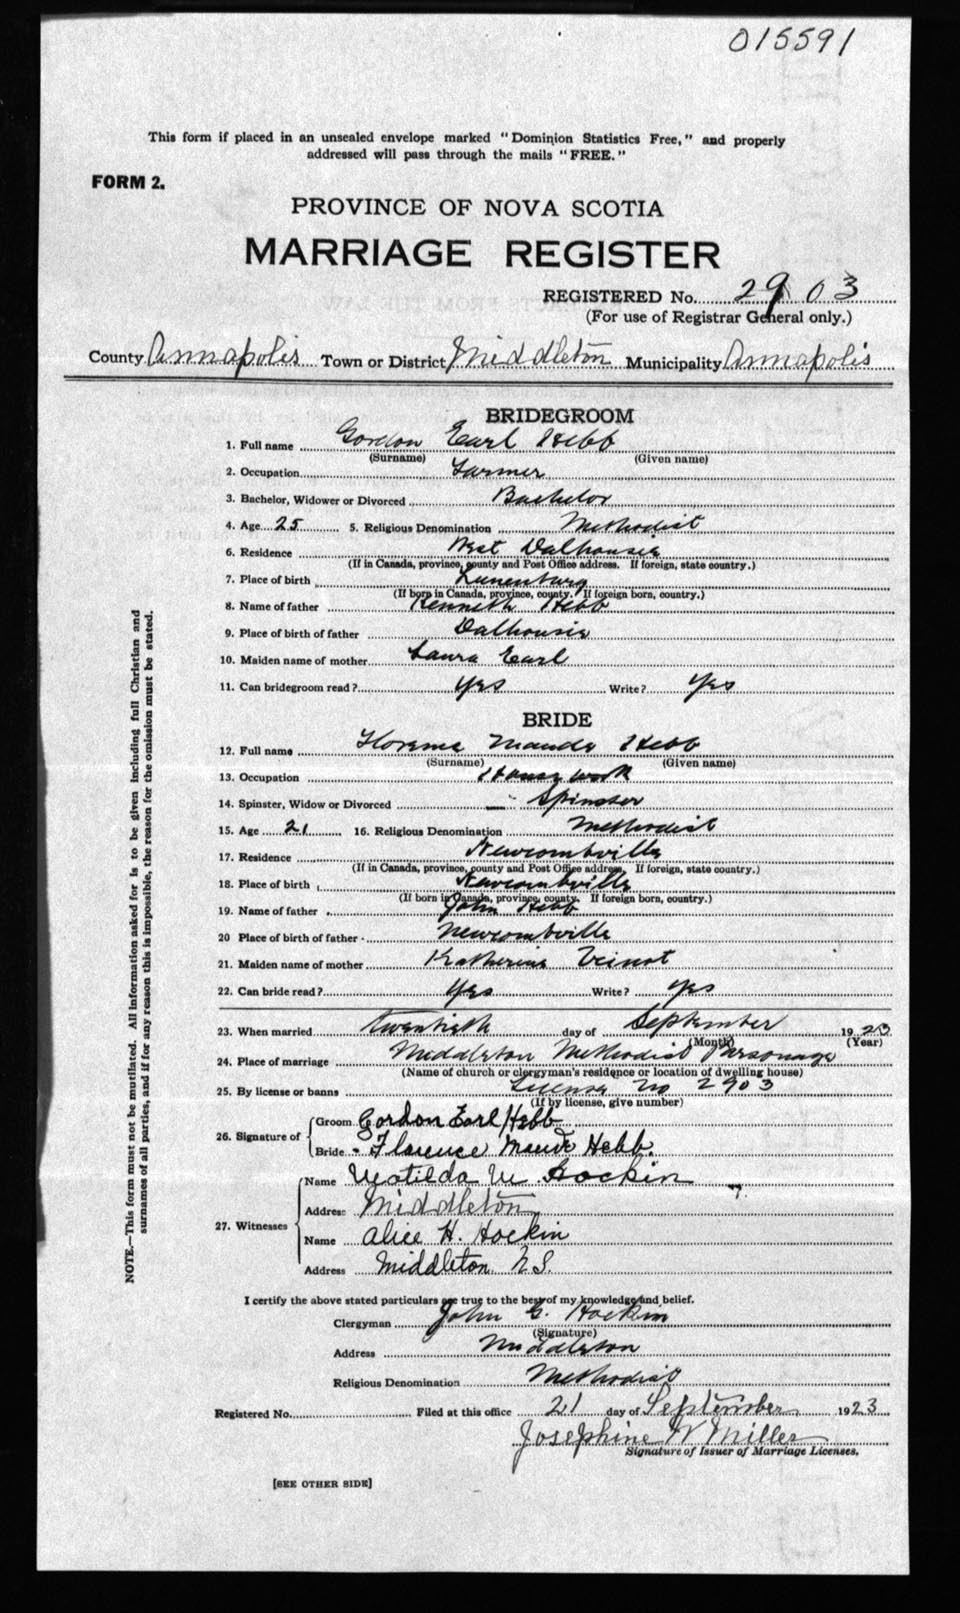 015591
This form if placed in an unsealed envelope marked "Dominion Statistics Free," and properly
addressed will pass through the mails "FREE."
FORM 2.
PROVINCE OF NOVA SCOTIA
MARRIAGE REGISTER
REGISTERED No. 2903
(For use of Registrar General only.)
County Annapolis Town or District Middleton Municipality Annapolis
BRIDEGROOM
1. Full name Gordon Earl Hebb
(Surname) (Given name)
2. Occupation Farmer
3. Bachelor, Widower or Divorced Bachelor
4. Age 25 5. Religious Denomination Methodist
6. Residence West Dalhousie
(If in Canada, province, county and Post Office address. If foreign, state country.)
7. Place of birth Lunenburg
(If born in Canada, province, county. If foreign born, country.)
8. Name of father Kenneth Hebb
9. Place of birth of father Dalhousie
10. Maiden name of mother Laura Earl
11. Can bridegroom read? Yes Write? Yes
BRIDE
12. Full name Florence Maude Hebb
(Surname) (Given name)
13. Occupation House work
14. Spinster, Widow or Divorced Spinster
15. Age 21 16. Religious Denomination Methodist
17. Residence Newcombville
(If in Canada, province, county and Post Office address. If foreign, state country.)
18. Place of birth Newcombville
(If born in Canada, province, county. If foreign born, country.)
19. Name of father John Hebb
20 Place of birth of father Newcombville
21. Maiden name of mother Katherine Veinot
22. Can bride read? Yes Write? Yes
23. When married twentieth day of September 1923
(Month) (Year)
24. Place of marriage Middleton Methodist Parsonage
(Name of church or clergyman's residence or location of dwelling house)
25. By license or banns License No 2903
(If by license, give number)
26. Signature of Groom Gordon Earl Hebb
Bride Florence Maude Hebb.
27. Witnesses Name Matilda M Hockin
Address Middleton
Name Alice H. Hockin
Address Middleton N.S.
I certify the above stated particulars are true to the best of my knowledge and belief.
Clergyman John G. Hockin
(Signature)
Address Middleton
Religious Denomination Methodist
Registered No. Filed at this office 21 day of September 1923
Josephine W Miller
Signature of Issuer of Marriage Licenses.
[SEE OTHER SIDE]
NOTE.—This form must not be mutilated. All information asked for is to be given including full Christian and
surnames of all parties, and if for any reason this is impossible, the reason for the omission must be stated.